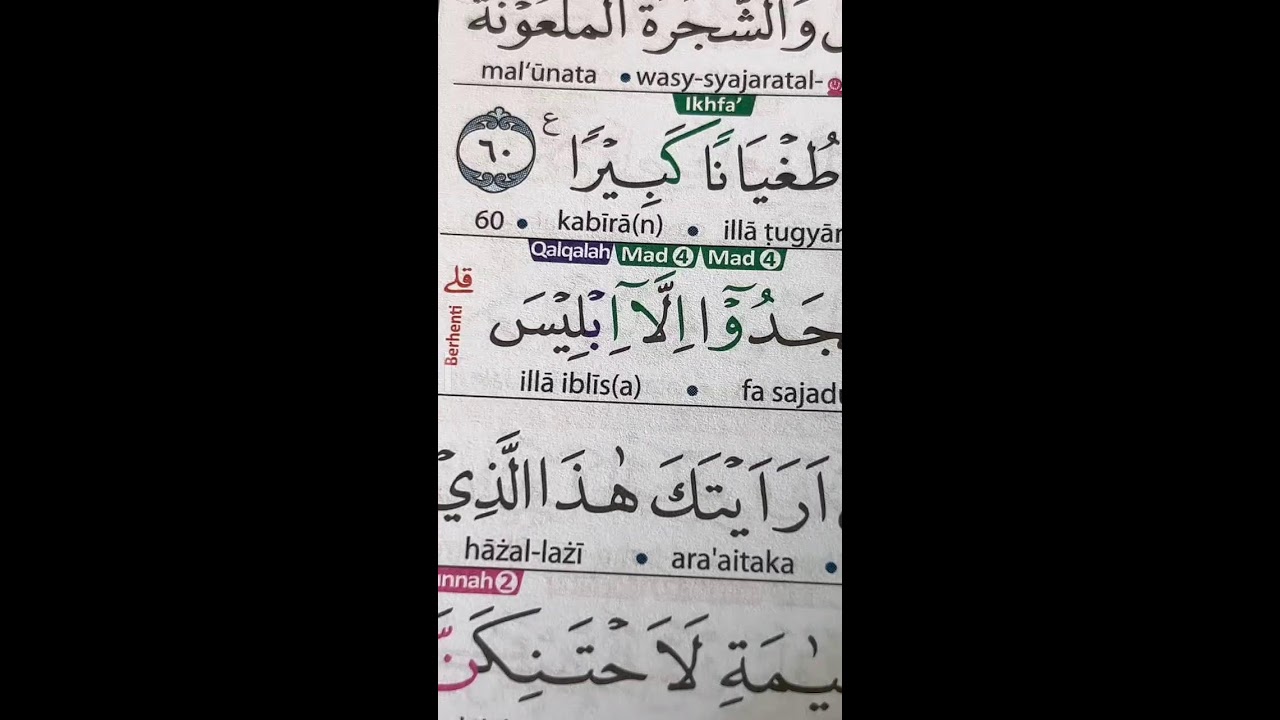 وَالشَّجَرَةَ الْمَلْعُوْنَةَ
mal‘ūnata • wasy-syajaratal-
Ikhfa’
طُغْيَانًا كَبِيْرًا ع ٦٠
60 • kabīrā(n) • illā ṭugyān
Qalqalah Mad 4 Mad 4
جَدُوْٓا اِلَّآ اِبْلِيْسَ قلى
Berhenti
illā iblīs(a) • fa sajadū
اَرَاَيْتَكَ هٰذَا الَّذِيْ
hāżal-lażī • ara'aitaka •
unnah 2
يٰمَةِ لَاَحْتَنِكَنَّ